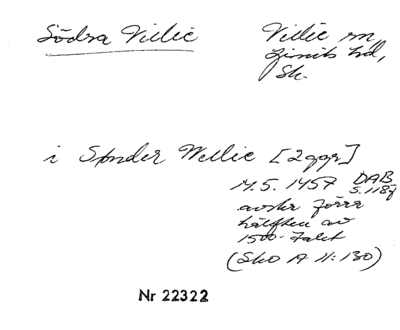 Södra Villie
Villie sn,
Ljunits hd,
Sk.
i Synder Wellie [2 ggr]
14.5. 1457 DAB
s. 118 f
avskr förra
hälften av
1500-talet
(Sko A II: 130)
Nr 22322